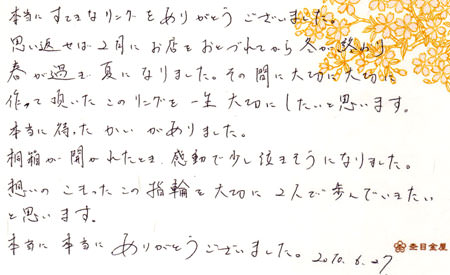 本当にすてきなリングをありがとうございました。
思い返せば2月にお店をおとづれてから冬が終わり
春が過ぎ夏になりました。その間に大切に大切に
作って頂いたこのリングを一生大切にしたいと思います。
本当に待ったかいがありました。
桐箱が開かれたとき感動で少し泣きそうになりました。
想いのこもったこの指輪を大切に2人で歩んでいきたい
と思います。
本当に本当にありがとうございました。2010.6.27
杢目金屋